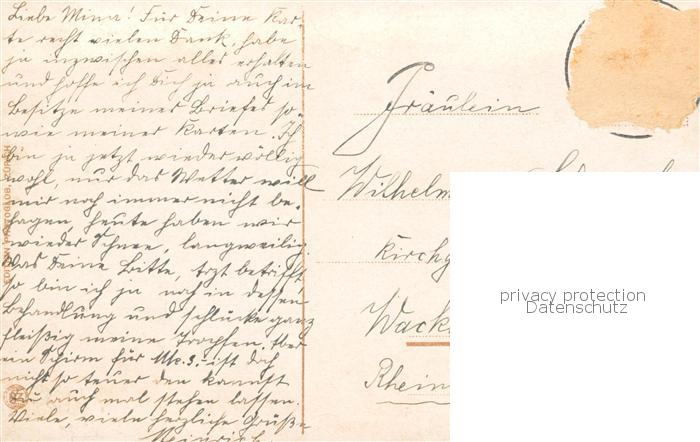 Liebe Mina! Für Deine Kar-
te recht vielen Dank, habe
ja inzwischen alles erhalten
und hoffe ich Dich ja auch im
Besitze meines Briefes so-
wie meiner Karten. Ich
bin ja jetzt wieder völlig
wohl, nur das Wetter will
mir noch immer nicht be-
hagen, heute haben wir
wieder Schnee, langweilig.
Was Deine Bitte, betrifft
so bin ich ja noch in dessen
Behandlung und schlucke ganz
fleißig meine Tropfen. Aber
ein Schirm für Mk. 3.- ist doch
nicht so teuer den kannst
Du auch mal stehen lassen.
Viele, viele herzliche Grüße
Heinrich
Fräulein
Wilhelm
Kirchg
Wack
Rhein
EDITION PHOTOGLOB, ZÜRICH
privacy protection
Datenschutz